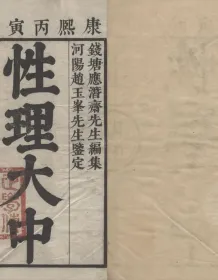 康熙丙寅
錢塘應潛齋先生編集
河陽趙玉峯先生鑒定
性理大中